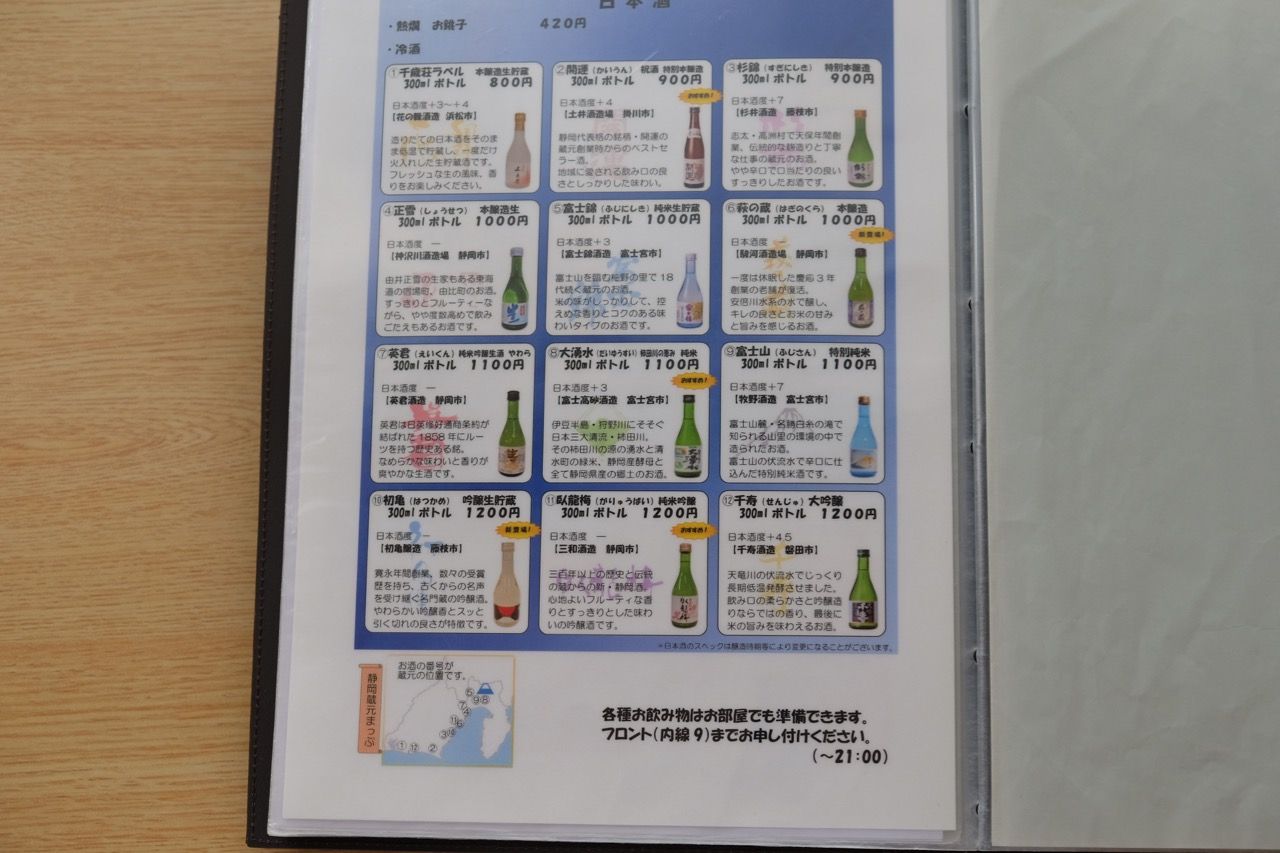 日本酒
・熱燗 お銚子 420円
・冷酒
①千歳荘ラベル 本醸造生貯蔵
300mlボトル 800円
日本酒度+3～+4
【花の舞酒造 浜松市】
造りたての日本酒をそのま
ま低温で貯蔵し、一度だけ
火入れした生貯蔵酒です。
フレッシュな生の風味、香
りをお楽しみください。
②開運(かいうん) 祝酒 特別本醸造
300mlボトル 900円
おすすめ!
日本酒度+4
【土井酒造場 掛川市】
静岡代表格の銘柄・開運の
蔵元創業時からのベストセ
ラー酒。
地域に愛される飲み口の良
さとしっかりした味わい。
③杉錦(すぎにしき) 特別本醸造
300mlボトル 900円
日本酒度+7
【杉井酒造 藤枝市】
志太・高洲村で天保年間創
業、伝統的な麹造りと丁寧
な仕事の蔵元のお酒。
やや辛口で口当たりの良い
すっきりしたお酒です。
④正雪(しょうせつ) 本醸造生
300mlボトル 1000円
日本酒度 ―
【神沢川酒造場 静岡市】
由井正雪の生家もある東海
道の宿場町、由比町のお酒。
すっきりとフルーティーな
がら、やや度数高めで飲み
ごたえもあるお酒です。
⑤富士錦(ふじにしき) 純米生貯蔵
300mlボトル 1000円
日本酒度+3
【富士錦酒造 富士宮市】
富士山を望む柚野の里で18
代続く蔵元のお酒。
米の味がしっかりして、控
えめな香りとコクのある味
わいタイプのお酒です。
⑥萩の蔵(はぎのくら) 本醸造
300mlボトル 1000円
新登場!
日本酒度 ―
【駿河酒造場 静岡市】
一度は休眠した慶応3年
創業の老舗が復活。
安倍川水系の水で醸し、
キレの良さとお米の甘み
と旨みを感じるお酒。
⑦英君(えいくん) 純米吟醸生酒 やわら
300mlボトル 1100円
日本酒度 ―
【英君酒造 静岡市】
英君は日英修好通商条約が
結ばれた1858年にルー
ツを持つ歴史ある銘。
なめらかな味わいと香りが
爽やかな生酒です。
⑧大湧水(だいゆうすい) 柿田川の恵み 純米
300mlボトル 1100円
おすすめ!
日本酒度+3
【富士高砂酒造 富士宮市】
伊豆半島・狩野川にそそぐ
日本三大清流・柿田川。
その柿田川の源の湧水と清
水町の緑米、静岡産酵母と
全て静岡県産の郷土のお酒。
⑨富士山(ふじさん) 特別純米
300mlボトル 1100円
日本酒度+7
【牧野酒造 富士宮市】
富士山麓・名勝白糸の滝で
知られる山里の環境の中で
造られたお酒。
富士山の伏流水で辛口に仕
込んだ特別純米酒です。
⑩初亀(はつかめ) 吟醸生貯蔵
300mlボトル 1200円
新登場!
日本酒度 ―
【初亀醸造 藤枝市】
寛永年間創業、数々の受賞
歴を持ち、古くからの名声
を受け継ぐ名門蔵の吟醸酒。
やわらかい吟醸香とスッと
引く切れの良さが特徴です。
⑪臥龍梅(がりゅうばい) 純米吟醸
300mlボトル 1200円
おすすめ!
日本酒度 ―
【三和酒造 静岡市】
三百年以上の歴史と伝統
の蔵からの新・静岡酒。
心地よいフルーティな香
りとすっきりとした味わ
いの吟醸酒です。
⑫千寿(せんじゅ) 大吟醸
300mlボトル 1200円
日本酒度+4.5
【千寿酒造 磐田市】
天竜川の伏流水でじっくり
長期低温発酵させました。
飲み口の柔らかさと吟醸造
りならではの香り、最後に
米の旨みを味わえるお酒。
*日本酒のスペックは醸造時期等により変更になることがございます。
静岡蔵元まっぷ
お酒の番号が
蔵元の位置です。
各種お飲み物はお部屋でも準備できます。
フロント(内線9)までお申し付けください。
(～21:00)